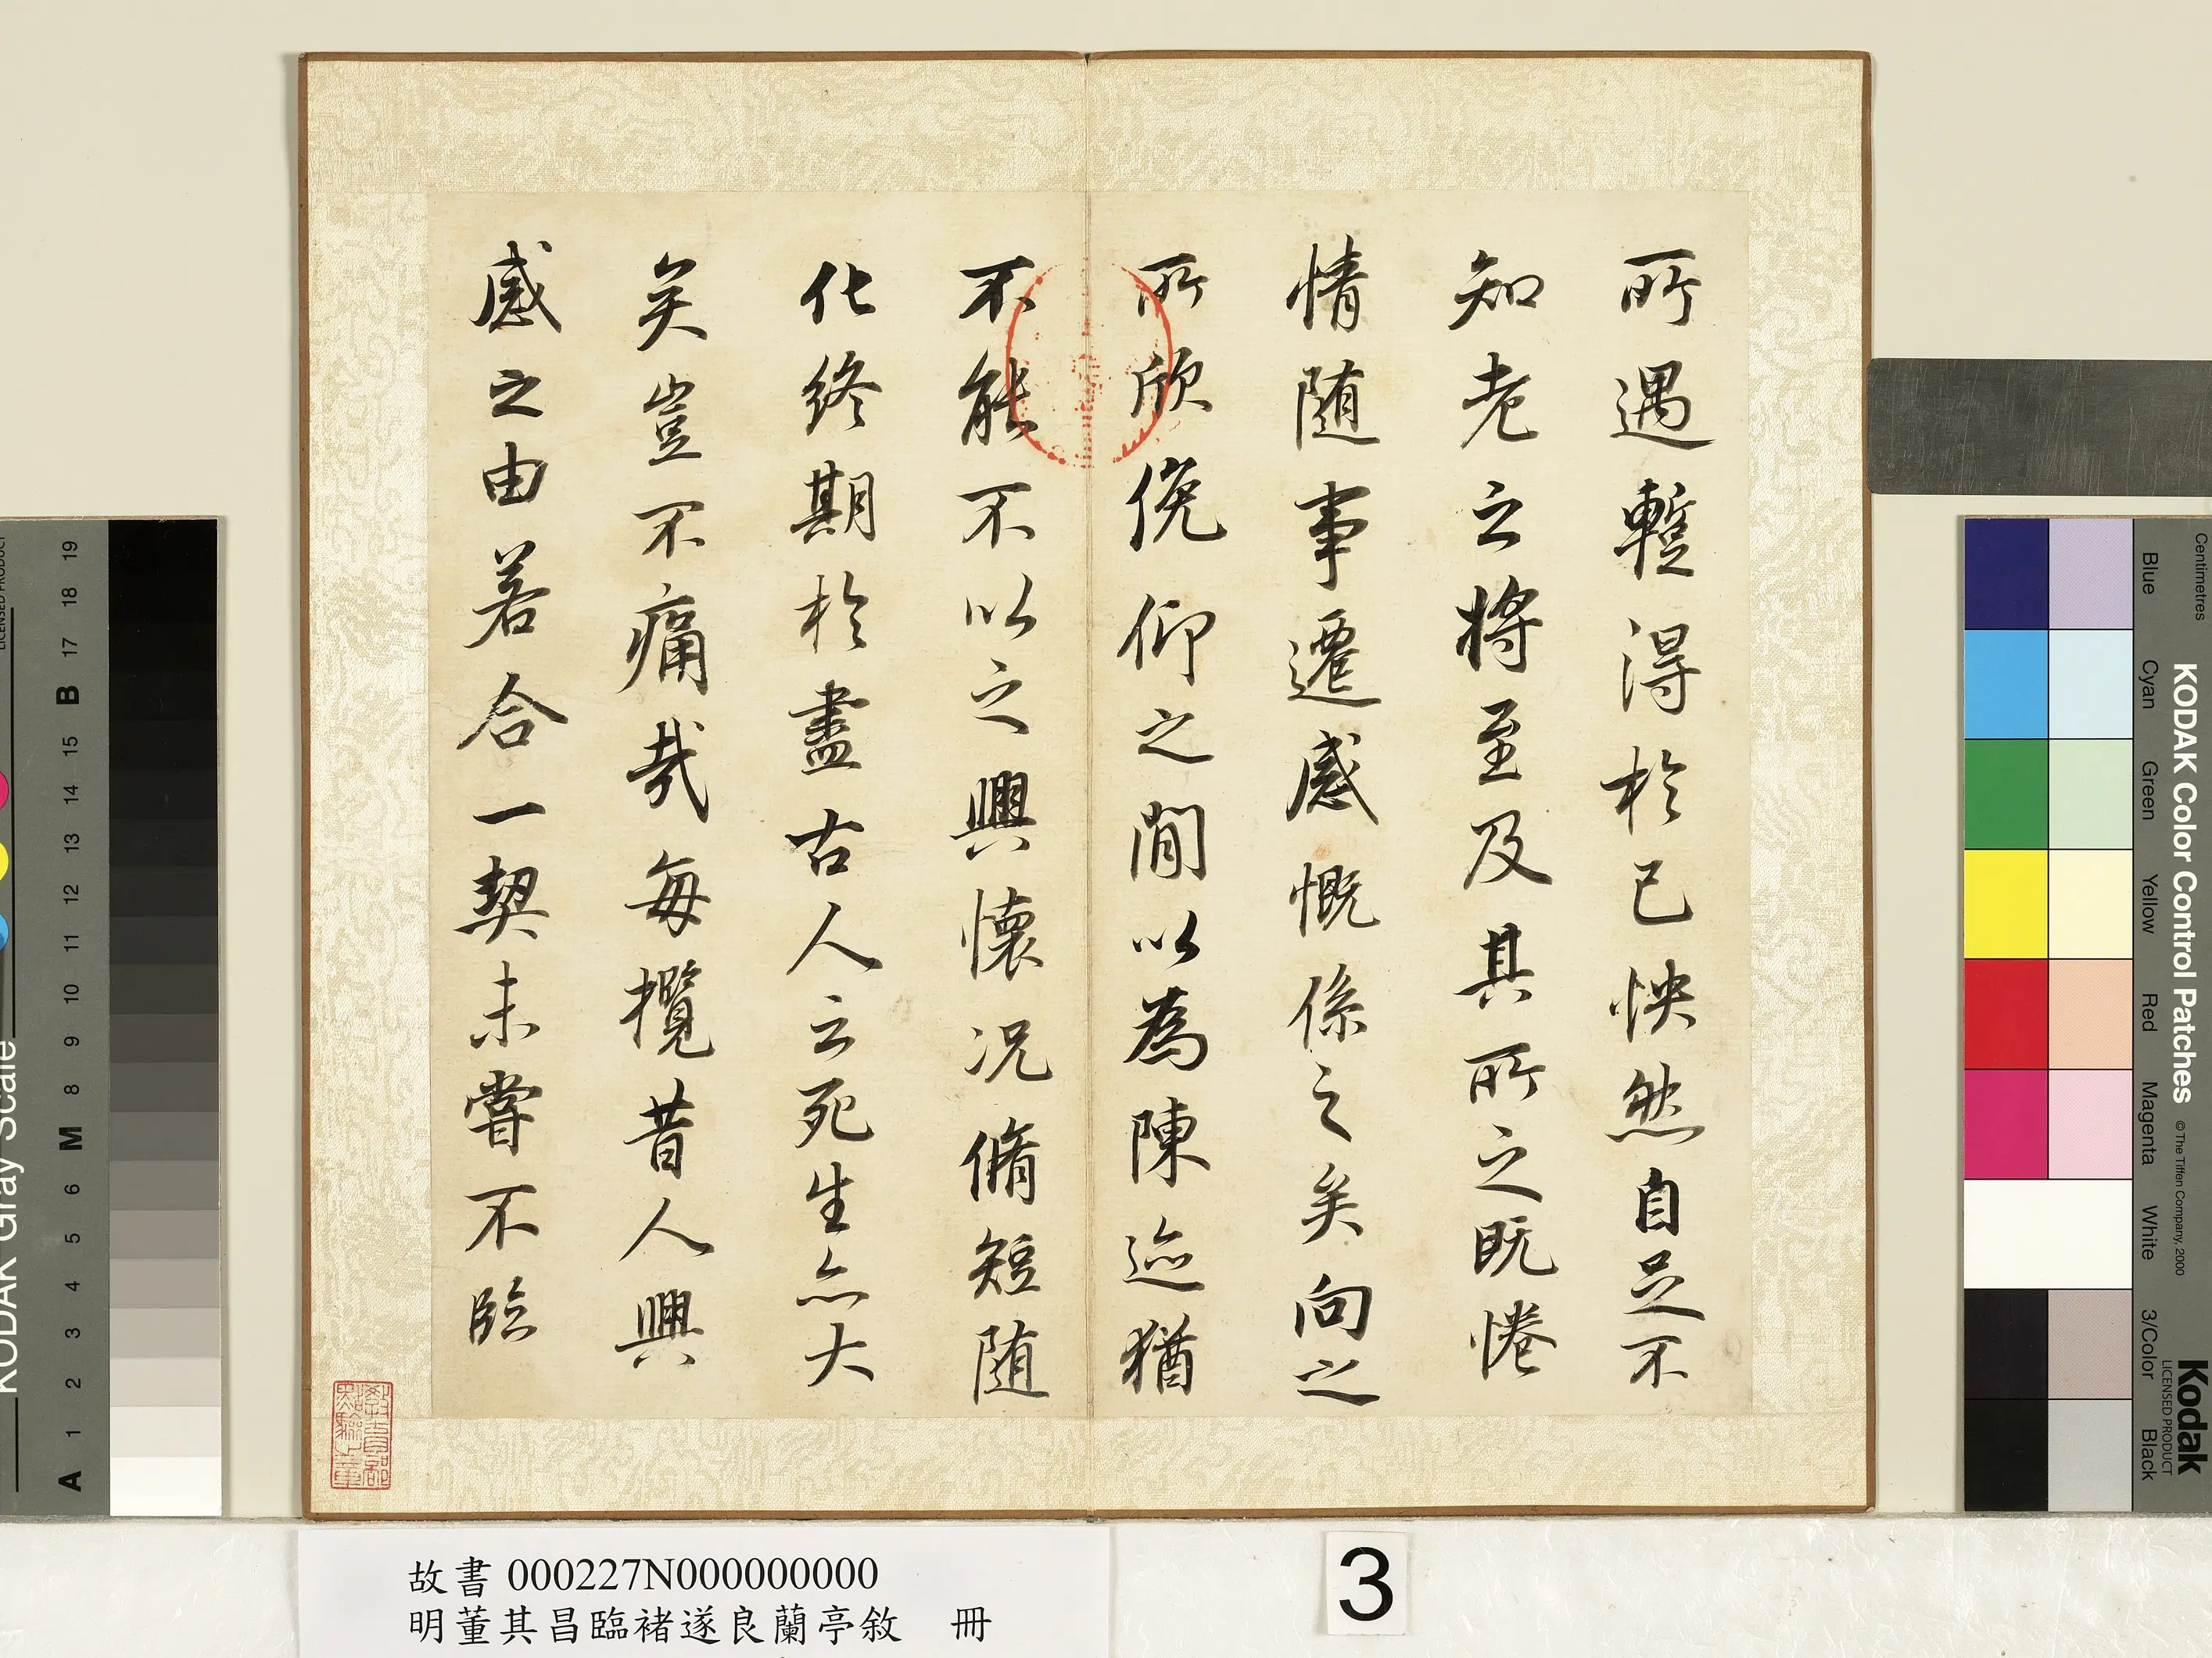 所遇蹔得於己怏然自足不
知老之將至及其所之既惓
情随事遷感慨係之矣向之
所欣俛仰之閒以為陳迹猶
不能不以之興懷況脩短随
化終期於盡古人云死生亦大
矣豈不痛哉每攬昔人興
感之由若合一契未嘗不臨
故書 000227N000000000
明董其昌臨褚遂良蘭亭敘 冊
3
KODAK Gray Scale
LICENSED PRODUCT
A 1 2 3 4 5 6 M 8 9 10 11 12 13 14 15 B 17 18 19
KODAK Color Control Patches
© The Tiffen Company, 2000
Kodak
LICENSED PRODUCT
Centimetres
Blue Cyan Green Yellow Red Magenta White 3/Color Black